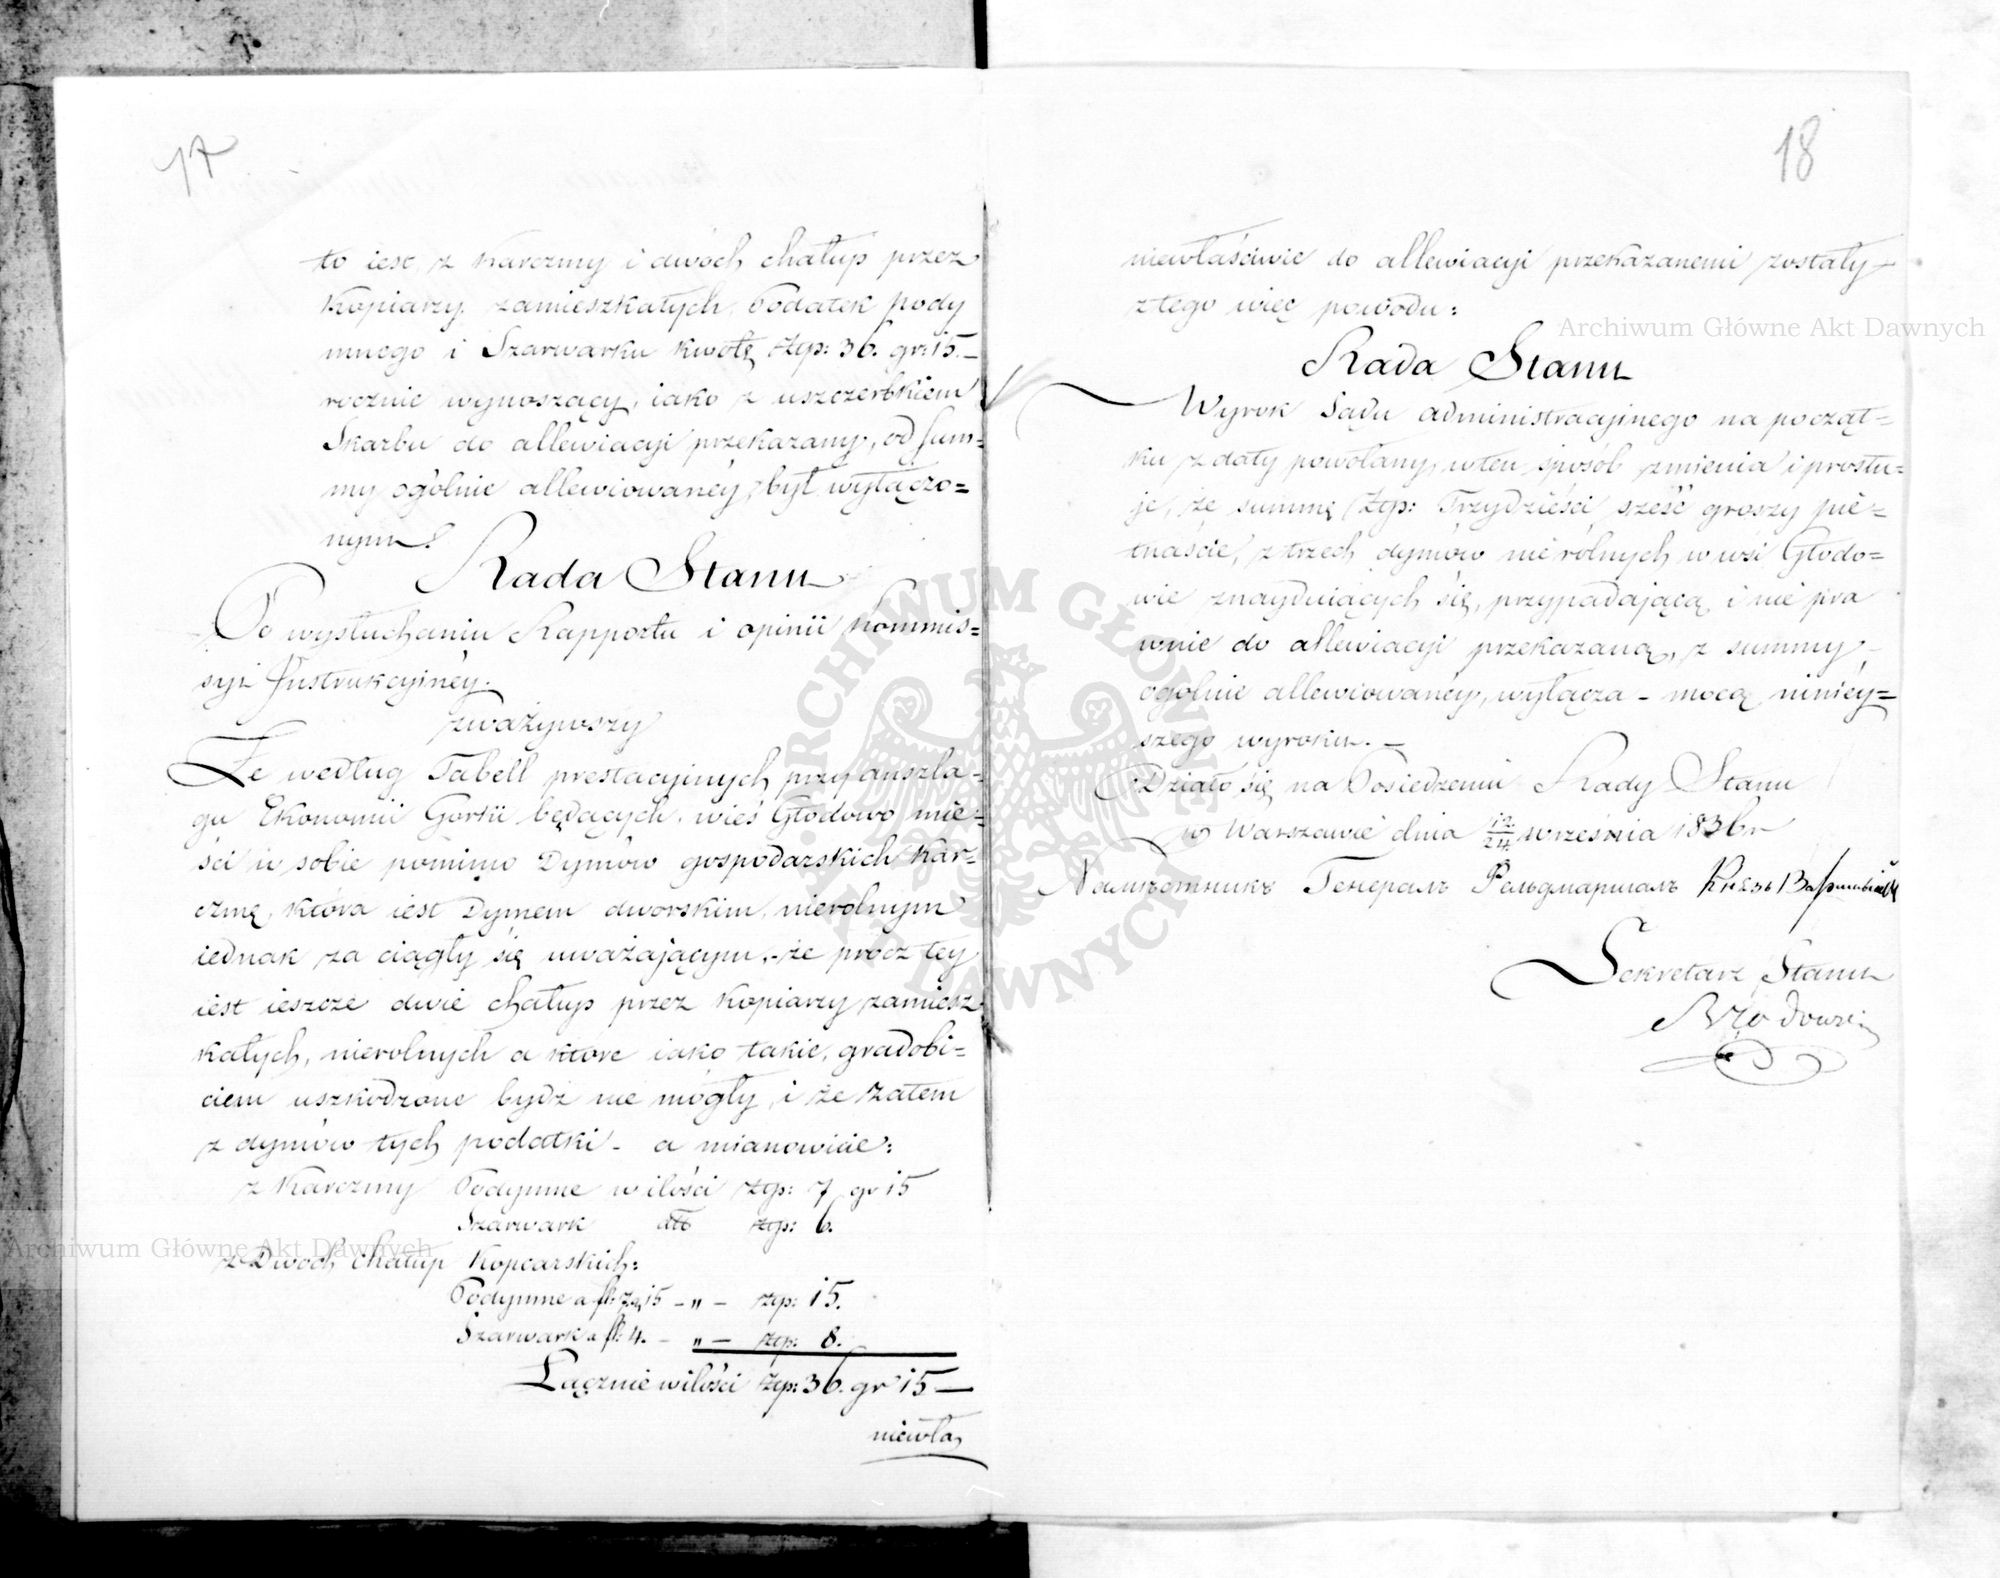 17
to iest z Karczmy i dwóch chałup przez
Kopiarzy zamieszkałych Podatek pody
mnego i Szarwarku kwotę złzp: 36. gr: 15.–
rocznie wynoszący, iako z uszczerbkiem
Skarbu do allewiacyi przekazany, od sum=
my ogólnie allewiowanéy, był wyłączo=
nym.
Rada Stanu
Po wysłuchaniu Rapportu i opinii Kommis=
syi Instrukcyinéy.
zważywszy
Że według Tabell prestacyinych przy anszla=
gu Ekonomii Gorki będących, wieś Głodowo mie=
ści w sobie pomimo Dymów gospodarskich Kar=
czmę, która iest Dymem dworskim, nierolnym
iednak za ciągły się uważającym, – że procz tey
iest ieszcze dwie chałup przez Kopiarzy zamiesz
kałych, nierolnych a które iako takie, gradobi=
ciem uszkodzone bydź nie mogły, i że zatem
z dymów tych podatki – a mianowicie:
z Karczmy Podymne w ilości złp: 7 gr 15
Szarwark dtto złp: 6.
z Dwoch chałup Kopiarskich:
Podymne a fl: 7 g 15 – „ – złp: 15.
Szarwark a fl: 4. – „ – złp: 8.
Łącznie w ilości złp: 36. gr 15 —
niewła
18
niewłaściwie do allewiacyi przekazanemi zostały –
z tego więc powodu:
Rada Stanu
Wyrok Sądu administracyinego na począt=
ku z daty powołany, w ten sposób zmienia i prostu=
je, że summę złp: Trzydzieści sześć groszy pię=
tnaście, z trzech dymów nie rólnych w wsi Głodo=
wie znayduiących się, przypadającą i nie pra
wnie do allewiacyi przekazaną, z summy
ogólnie allewiowanéy, wyłącza – mocą niniéy=
szego wyroku. –
Działo się na Posiedzeniu Rady Stanu
w Warszawie dnia 12/24 września 1836 r
Намѣстникъ Генералъ Фельдмаршалъ Князь Варшавскій
Sekretarz Stanu
Archiwum Główne Akt Dawnych
Archiwum Główne Akt Dawnych
ARCHIWUM GŁÓWNE AKT DAWNYCH